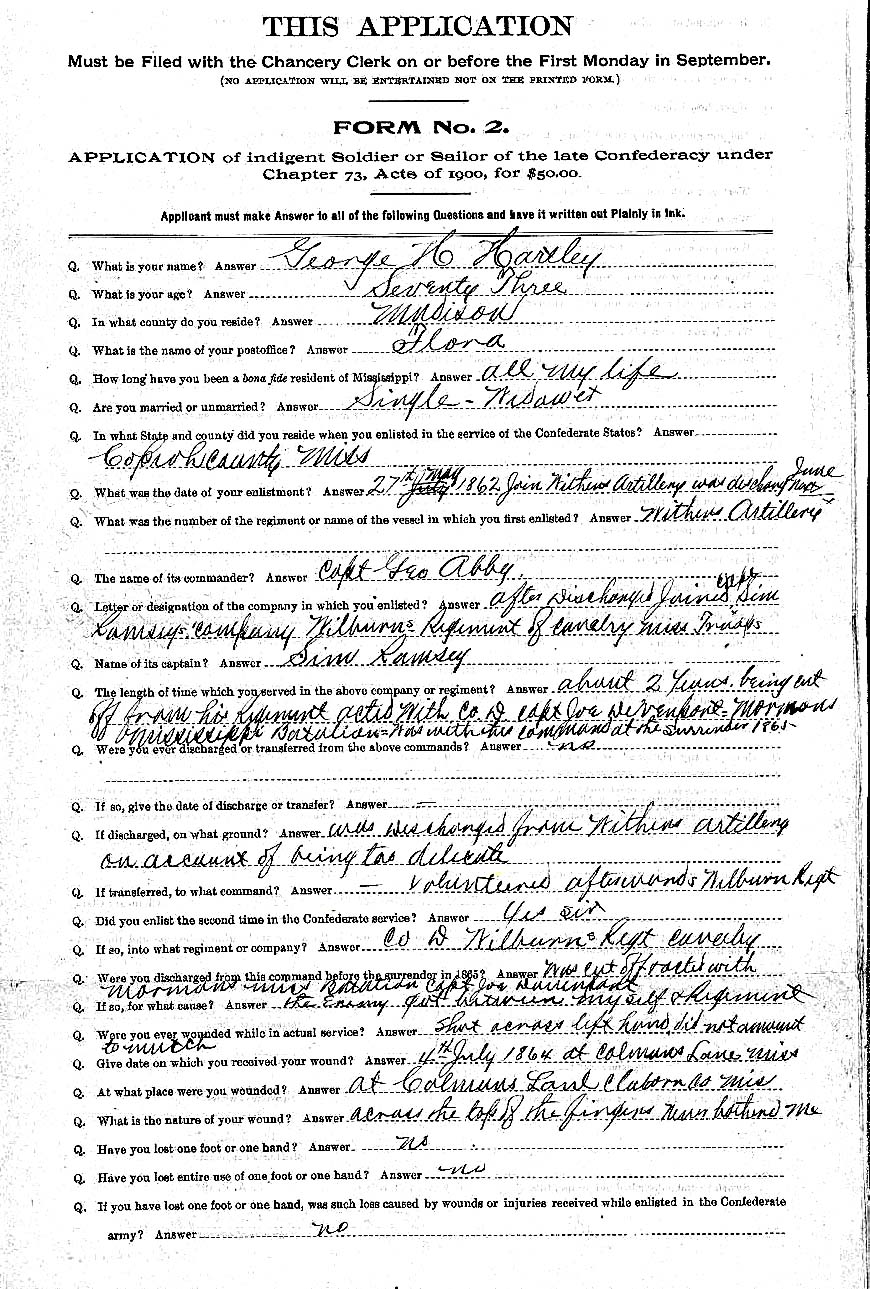 THIS APPLICATION
Must be Filed with the Chancery Clerk on or before the First Monday in September.
(NO APPLICATION WILL BE ENTERTAINED NOT ON THE PRINTED FORM.)
FORM No. 2.
APPLICATION of indigent Soldier or Sailor of the late Confederacy under
Chapter 73, Acts of 1900, for $50.00.
Applicant must make Answer to all of the following Questions and have it written out Plainly in Ink.
Q. What is your name? Answer George H Hartley
Q. What is your age? Answer Seventy Three
Q. In what county do you reside? Answer Madison
Q. What is the name of your postoffice? Answer Flora
Q. How long have you been a bona fide resident of Mississippi? Answer all my life
Q. Are you married or unmarried? Answer Single - Widower
Q. In what State and county did you reside when you enlisted in the service of the Confederate States? Answer
Copiah county Miss
Q. What was the date of your enlistment? Answer 27th May 1862 Join Withins Artillery was discharg June
Q. What was the number of the regiment or name of the vessel in which you first enlisted? Answer Withins Artillery
Q. The name of its commander? Answer Capt Geo Abby.
Q. Letter or designation of the company in which you enlisted? Answer after Discharged Joined Capt Sim
Ramseys company Wilburns Regiment of cavalry miss Troops
Q. Name of its captain? Answer Sim Ramsey
Q. The length of time which you served in the above company or regiment? Answer about 2 Years. being cut
off from his Regiment acted With Co D capt Joe Devenport - Mormons
Mississippi Batalion = Was with this command at the Surrender 1865-
Q. Were you ever discharged or transferred from the above commands? Answer no
Q. If so, give the date of discharge or transfer? Answer —
Q. If discharged, on what ground? Answer was Discharged from Withins artillery
on account of being too delicate
Q. If transferred, to what command? Answer — Volunteered afterwards Wilburn Regt
Q. Did you enlist the second time in the Confederate service? Answer Yes Sir
Q. If so, into what regiment or company? Answer Co D Wilburns Regt cavalry
Q. Were you discharged from this command before the surrender in 1865? Answer Was cut off & acted with
Mormons miss Batalion Capt Joe Davenport
Q. If so, for what cause? Answer the Enemy got between myself & Regiment
Q. Were you ever wounded while in actual service? Answer Shot across left hand, did not amount
to mutch
Q. Give date on which you received your wound? Answer 4th July 1864 at Colmans Lane Miss
Q. At what place were you wounded? Answer at Colmans Lane Claborn Co Mis
Q. What is the nature of your wound? Answer across the top of the fingers never bothered me
Q. Have you lost one foot or one hand? Answer no
Q. Have you lost entire use of one foot or one hand? Answer no
Q. If you have lost one foot or one hand, was such loss caused by wounds or injuries received while enlisted in the Confederate
army? Answer no